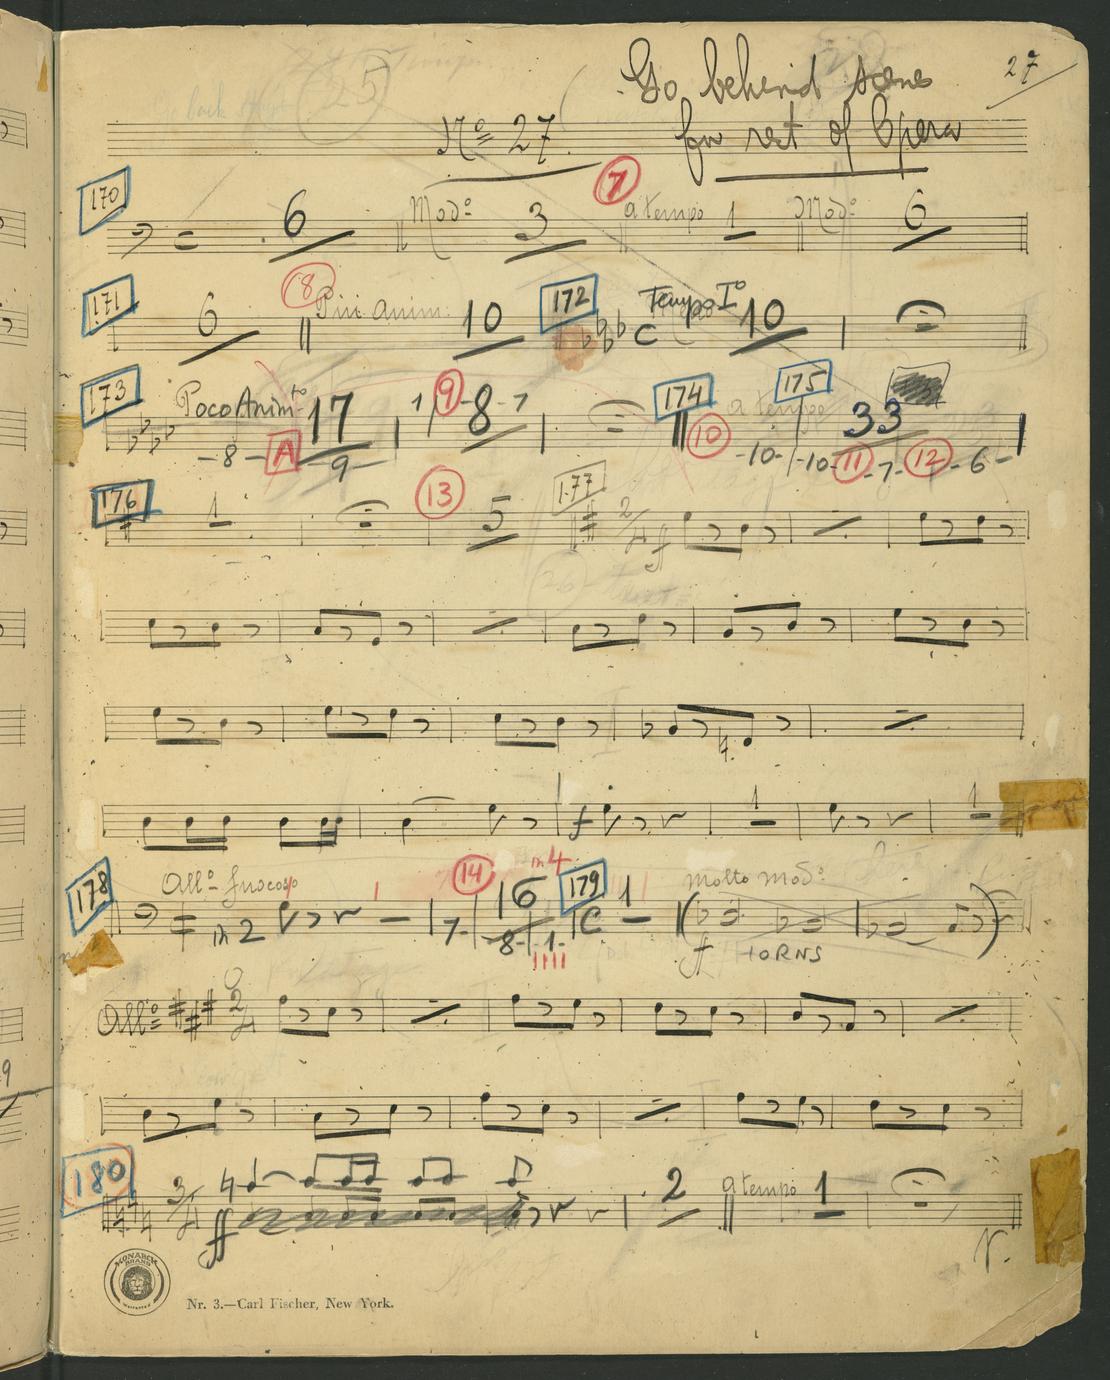 Go behind scene 27
Nº 27. for rest of Opera
170 6 Modº 3 7 a tempo 1 Modº 6
171 6 8 Piu Anim: 10 172 C Tempo Iº 10
173 Poco Animto 17 1 9 8 7 174 a tempo 175 33
-8- A 9- 10 -10- -10- 11 -7- 12 -6-
176 1 13 5 177 2/4 ff
26
1 f 1
178 Allº fuocoso in 2 1 7- 14 16 in 4 179 C 1 Molto Modº
8- 1- ff HORNS
Allº 2/4
180 3/4 ff 2 a tempo 1
V.
MONARCH BRAND
Nr. 3.—Carl Fischer, New York.
9